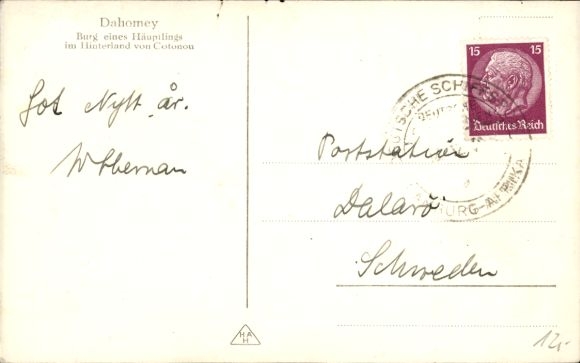 Dahomey
Burg eines Häuptlings
im Hinterland von Cotonou
Got Nytt år.
15 15
Deutsches Reich
DEUTSCHE SCHIFFSPOST
HAMBURG-AFRIKA
Poststation
Dalarö
Schweden
HAH
12,-